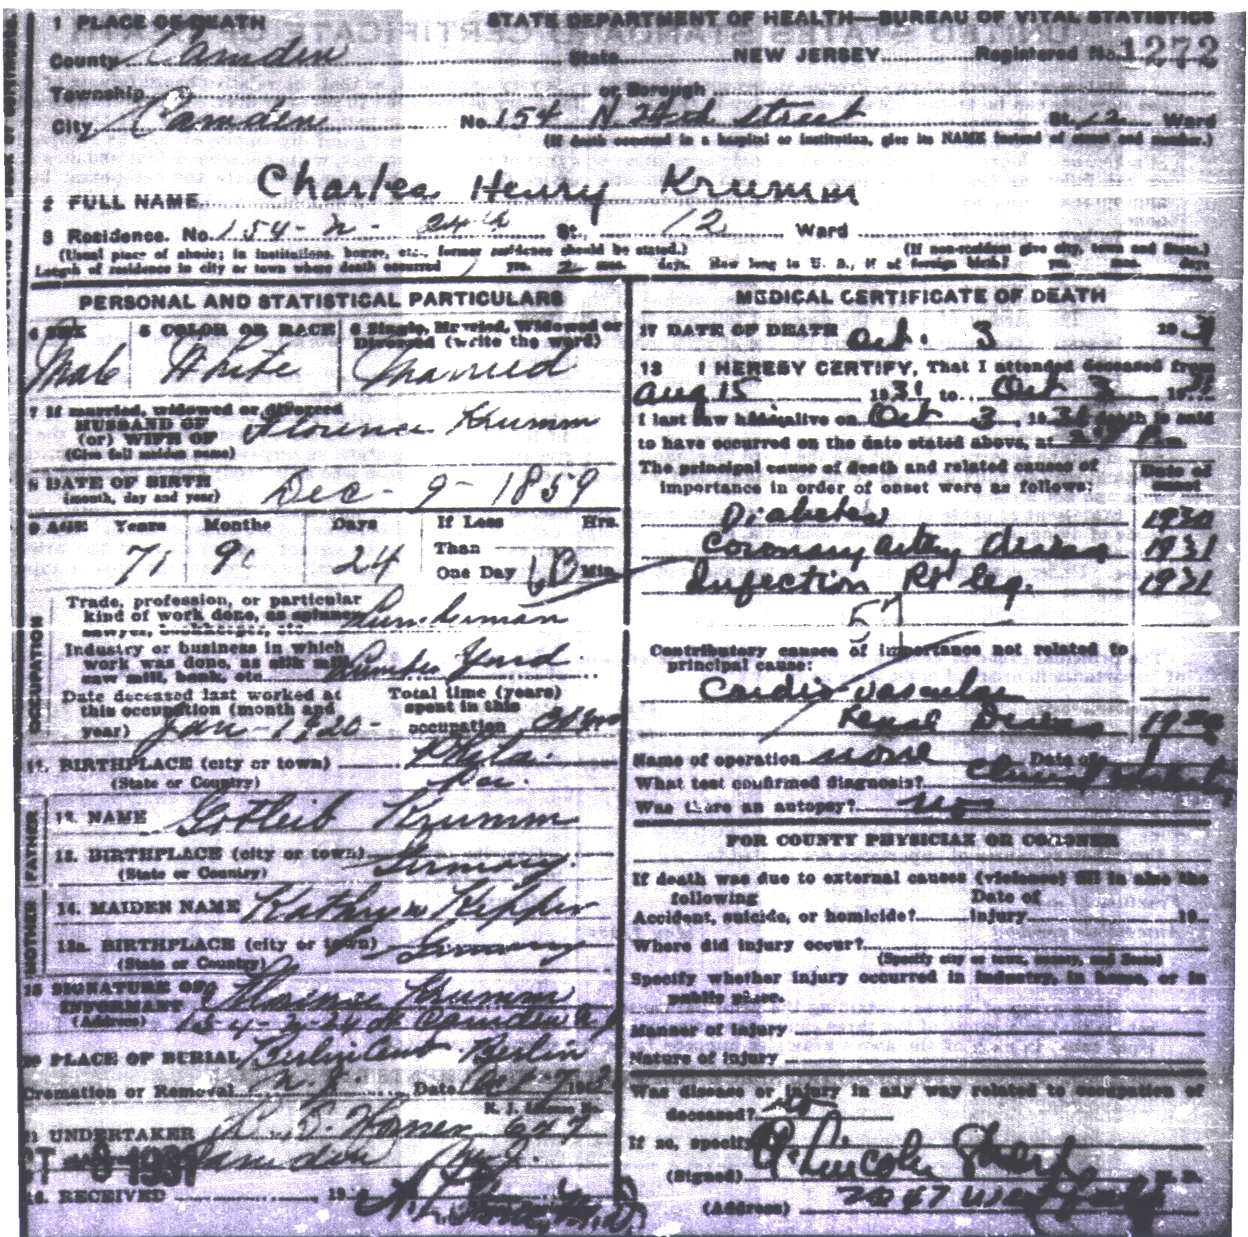 1 PLACE OF DEATH
STATE DEPARTMENT OF HEALTH—BUREAU OF VITAL STATISTICS
County Camden State NEW JERSEY Registered No. 1272
Township or Borough
City Camden No. 154 N 24th Street St. 12 Ward
(If death occurred in a hospital or institution, give its NAME instead of street and number.)
2 FULL NAME Charles Henry Krumm
3 Residence. No. 154 - N - 24th St., 12 Ward
(Usual place of abode; in institutions, homes, etc., former residence should be stated.) (If non-resident give city, town and State.)
Length of residence in city or town where death occurred yrs. 2 mos. days. How long in U. S., if of foreign birth? yrs. mos. days
PERSONAL AND STATISTICAL PARTICULARS
4 SEX 5 COLOR OR RACE 6 Single, Married, Widowed or Divorced (write the word)
Male White Married
7 If married, widowed or divorced
HUSBAND OF
(or) WIFE OF
(Give full maiden name)
Florence Krumm
8 DATE OF BIRTH
(month, day and year)
Dec - 9 - 1859
9 AGE Years Months Days If Less Hrs.
71 9 24 Than
One Day Min.
OCCUPATION
Trade, profession, or particular
kind of work done, as spinner,
sawyer, bookkeeper, etc. Lumberman
Industry or business in which
work was done, as silk mill,
saw mill, bank, etc. Lumber Yard
Date deceased last worked at
this occupation (month and
year) Jan - 1920 -
Total time (years)
spent in this
occupation
11. BIRTHPLACE (city or town) Phila.
(State or Country) Pa.
FATHER
12. NAME Gotleib Krumm
13. BIRTHPLACE (city or town)
(State or Country) Germany
MOTHER
14. MAIDEN NAME Kathryn
13a. BIRTHPLACE (city or town)
(State or Country) Germany
15 SIGNATURE OF
INFORMANT Florence Krumm
(Address) 154 - N - 24 St Camden N. J.
20 PLACE OF BURIAL Berlin Cem Berlin
Cremation or Removal N. J. Date Oct 7 193
N. J. License No.
21 UNDERTAKER 647
Camden N. J.
1931
16. RECEIVED 19
MEDICAL CERTIFICATE OF DEATH
17 DATE OF DEATH Oct. 3 19 31
18 I HEREBY CERTIFY, That I attended deceased from
Aug 15 1931 to Oct 3 1931
I last saw him alive on Oct 3, 1931 death is said
to have occurred on the date stated above, at m.
The principal cause of death and related causes of
importance in order of onset were as follows:
Date of
onset
Diabetes 1930
Coronary artery disease 1931
Infection Rt leg. 1931
Contributory causes of importance not related to
principal cause:
Cardio-vascular
Renal Disease
Name of operation none Date of
What test confirmed diagnosis? Clinical
Was there an autopsy? no
FOR COUNTY PHYSICIAN OR CORONER
If death was due to external causes (violence) fill in also the
following
Date of
Accident, suicide, or homicide? Injury 19
Where did injury occur?
(Specify city or town, county, and State)
Specify whether injury occurred in industry, in home, or in
public place.
Manner of injury
Nature of injury
Was disease or injury in any way related to occupation of
deceased? no
If so, specify
(Signed) A. Lincoln M. D.
(Address)